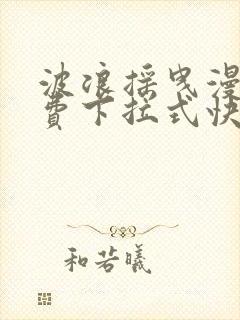 波浪摇曳漫
费下拉式快
和若曦